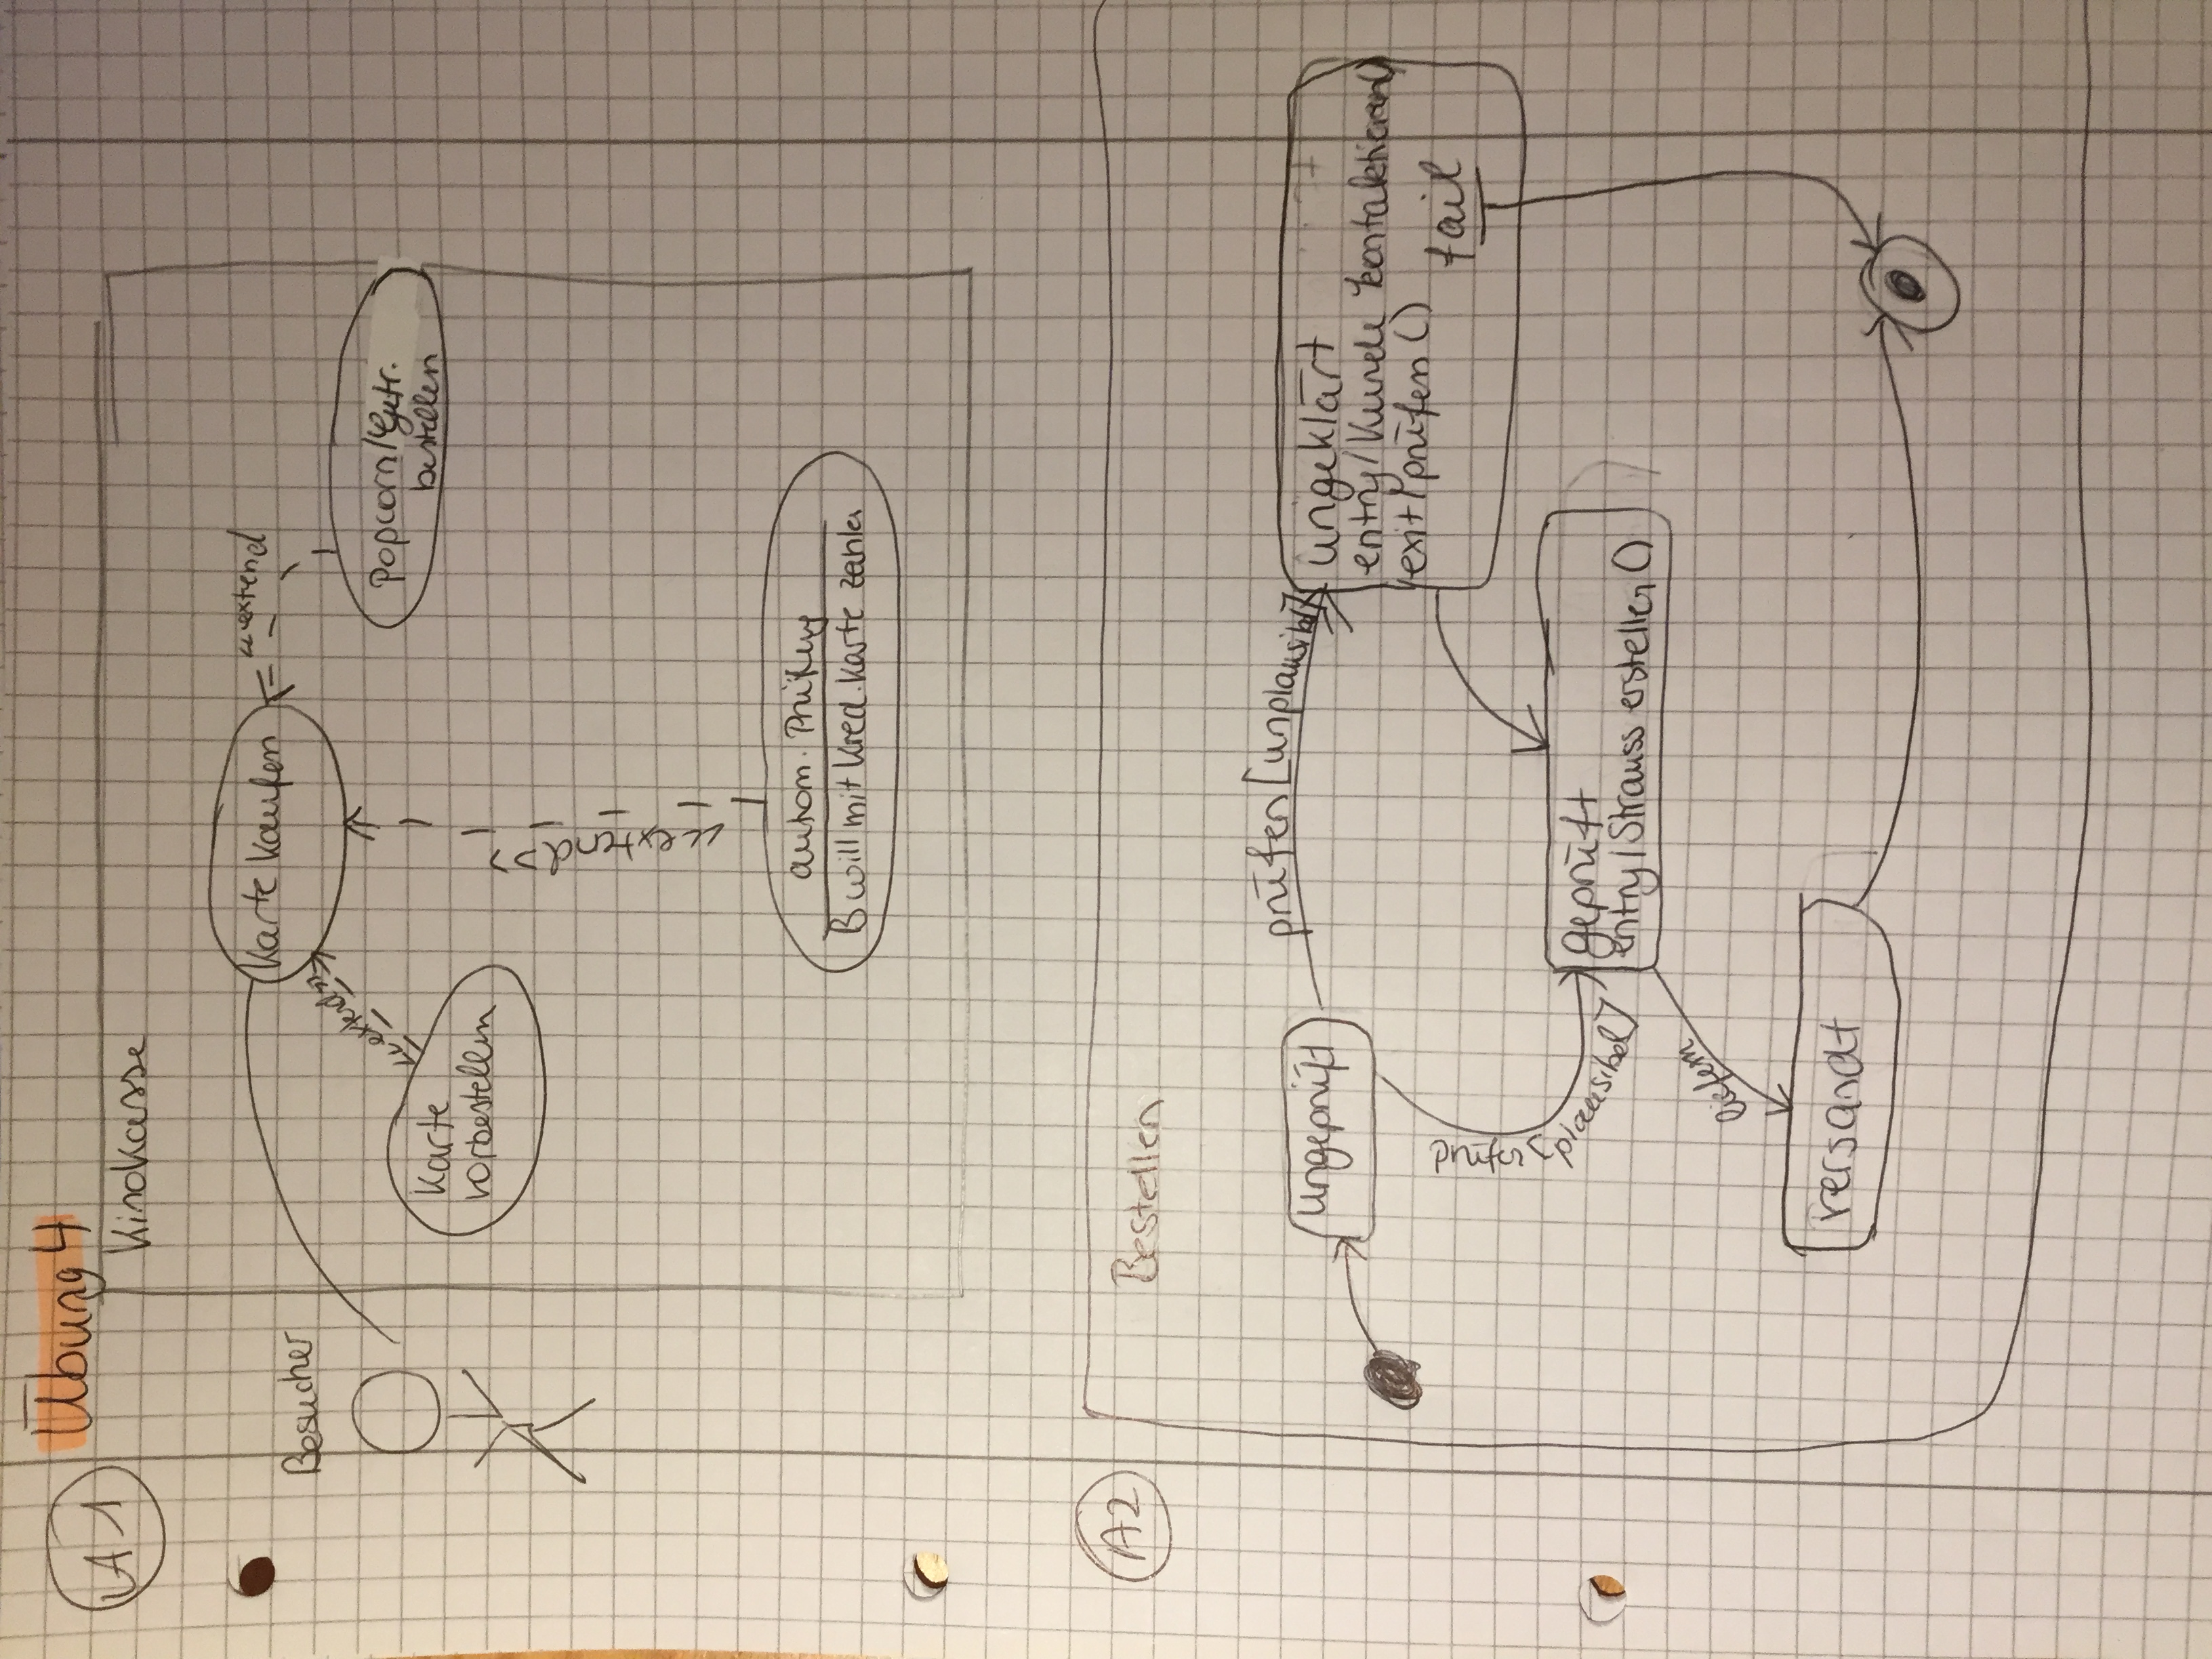 Übung 4
A1
Kinokasse
Karte kaufen
<<extend
Besucher
<<extend>>
Popcorn/Getr.
bestellen
Karte
vorbestellen
<<extend>>
autom. Prüfung
B will mit Kred.Karte zahlen
A2
Bestellen
prüfen [unplausibel]
ungeprüft
ungeklärt
entry/Kunde kontaktieren()
exit/prüfen ()
fail
prüfen [plausibel]
geprüft
entry/Strauss erstellen ()
liefern
versandt